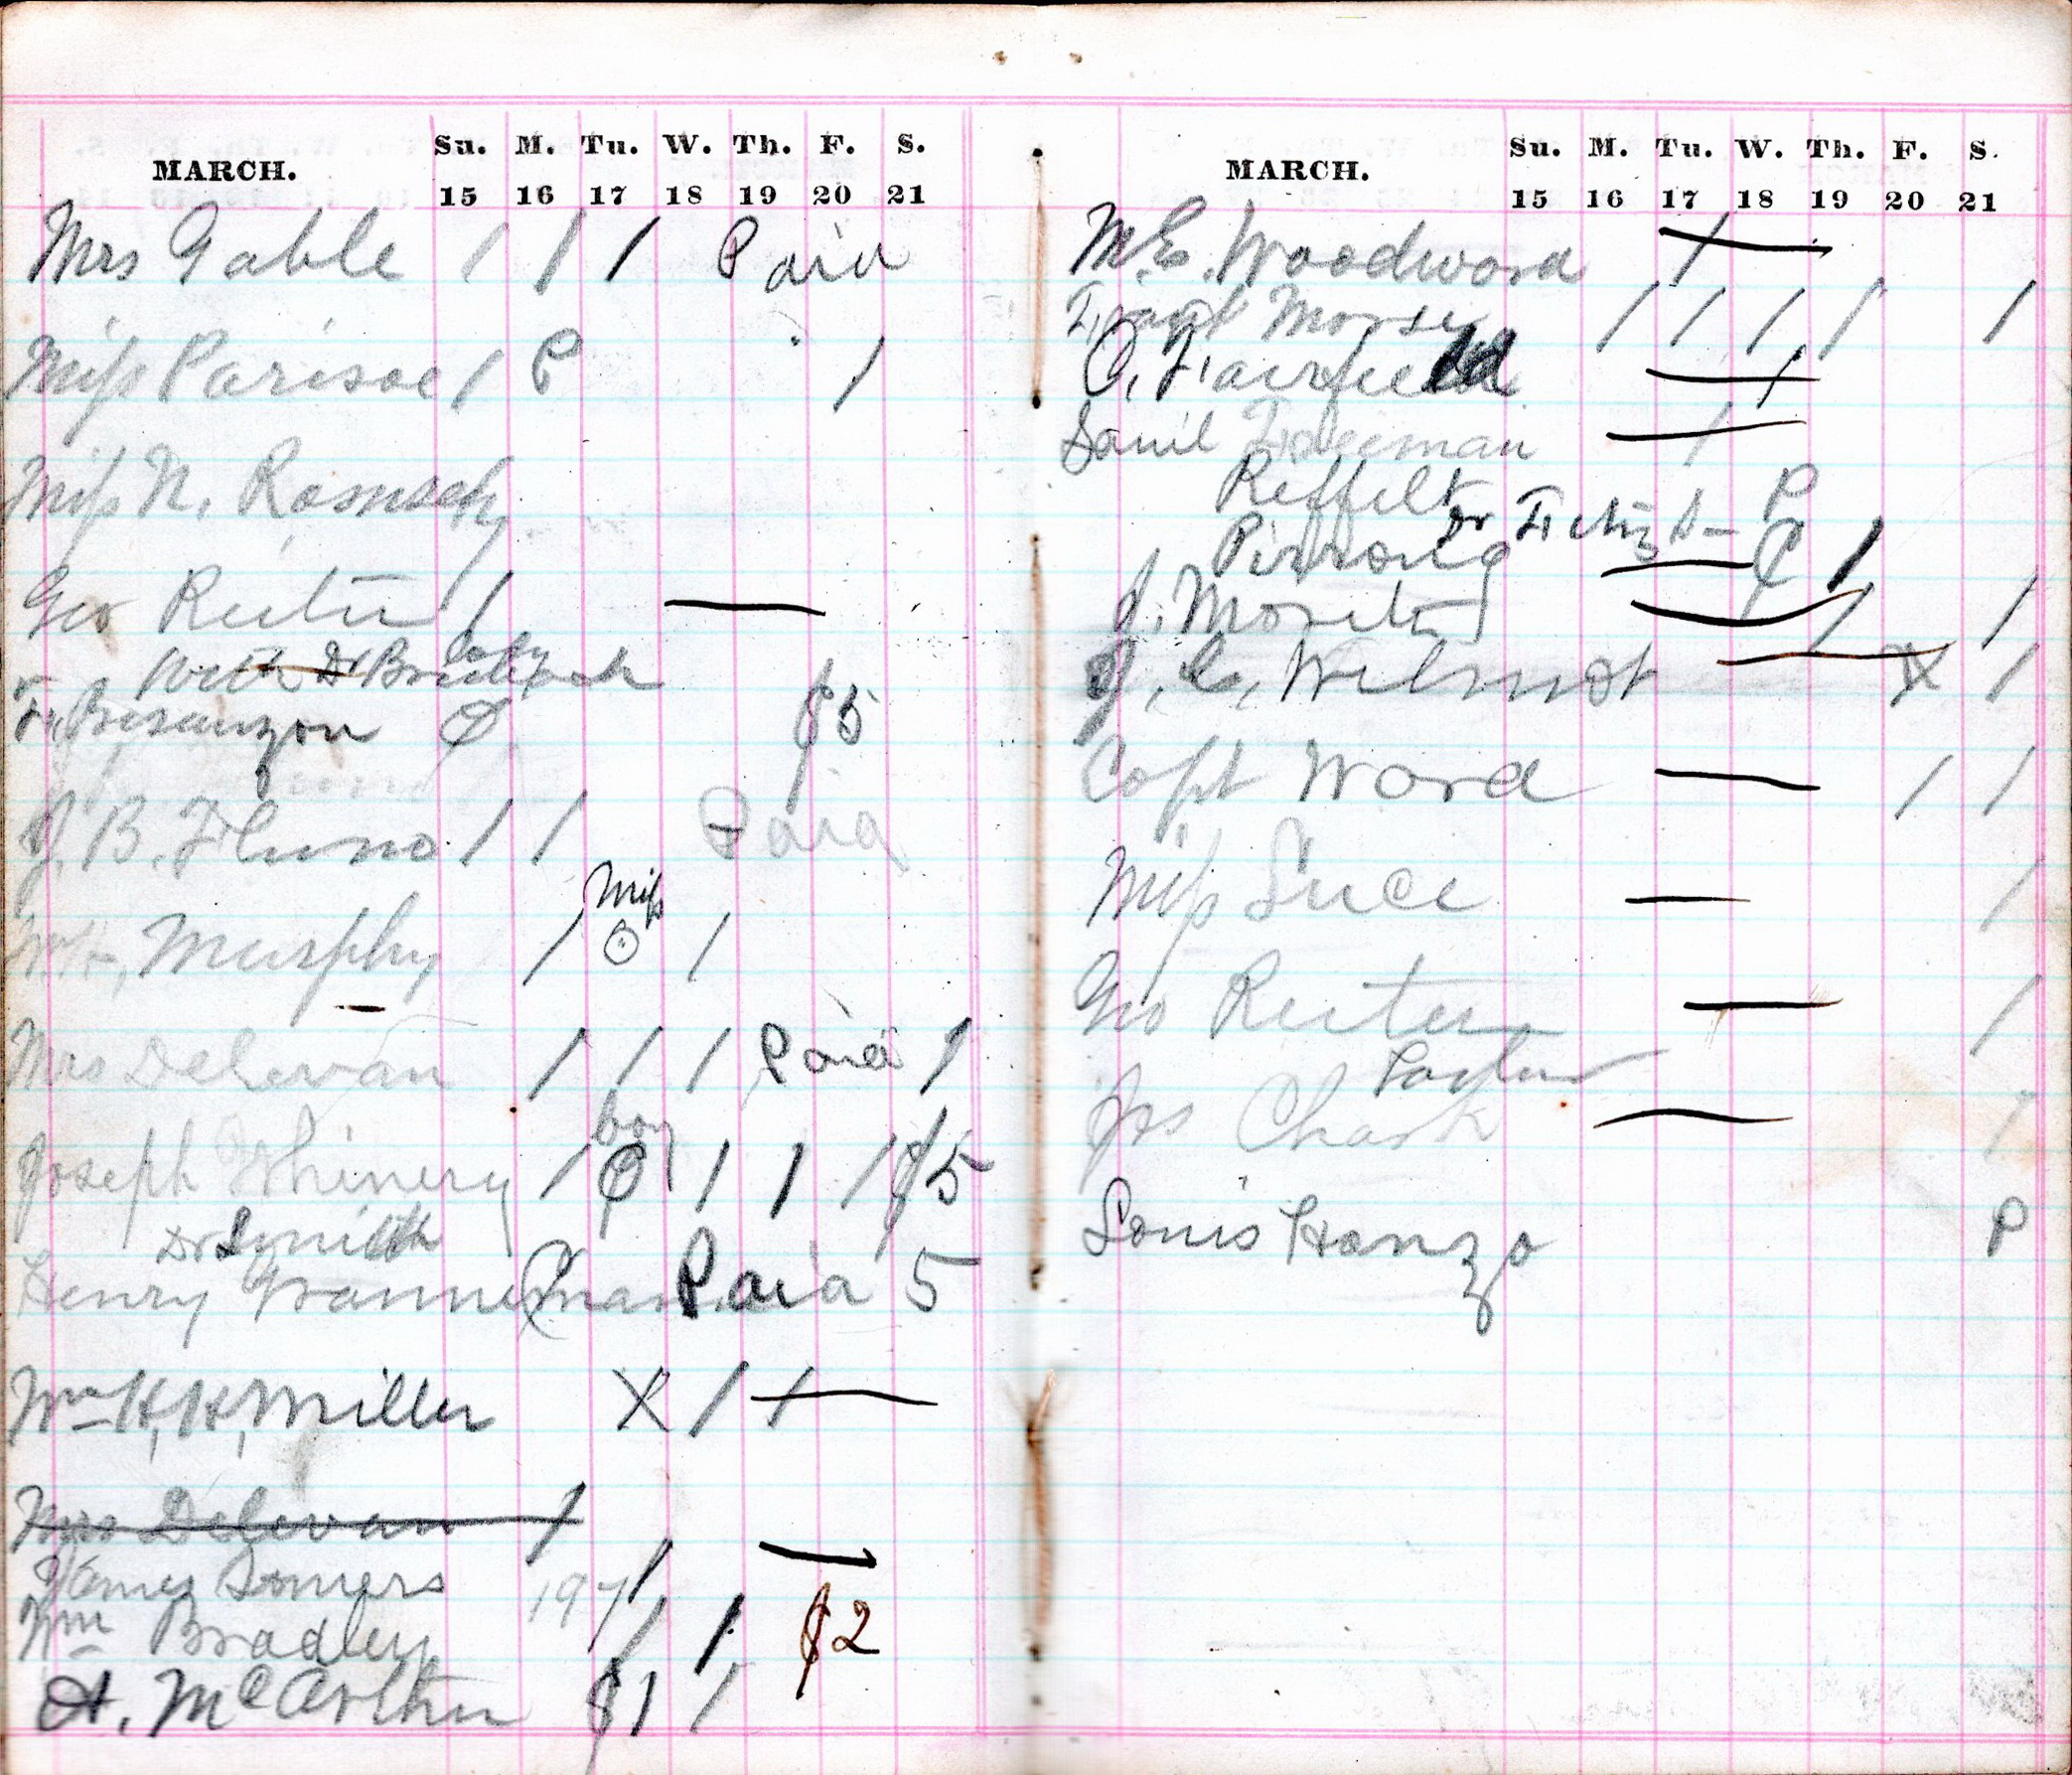 MARCH. Su. M. Tu. W. Th. F. S.
15 16 17 18 19 20 21
Mrs Gable / / / Paid
Miss Parisoe / P /
Miss N.
Geo Reiter / —
With Dr
Fr, Besanzon $5
J. B. Fluno / / Paid
Miss
Murphy / /
Mrs Delevan / / / Paid /
boy
Joseph / / / / $5
Dr Smith
Henry Paid 5
Wm H, H, Miller X / /
Mrs Delevan /
James Somers /
197
Wm Bradley / / $2
A. McArthur $1 /
MARCH. Su. M. Tu. W. Th. F. S.
15 16 17 18 19 20 21
M. E. Woodword /
Frank Morse / / / / /
C. Fairfield /
Saml Freeman /
Reffelt P
Dr
Pirrong /
J. Moritz / /
J. C. Wilmot X /
Capt Word — / /
Miss Luce — /
Geo Reiter — /
Taylor
Jas Chark — /
Louis Hanzo P